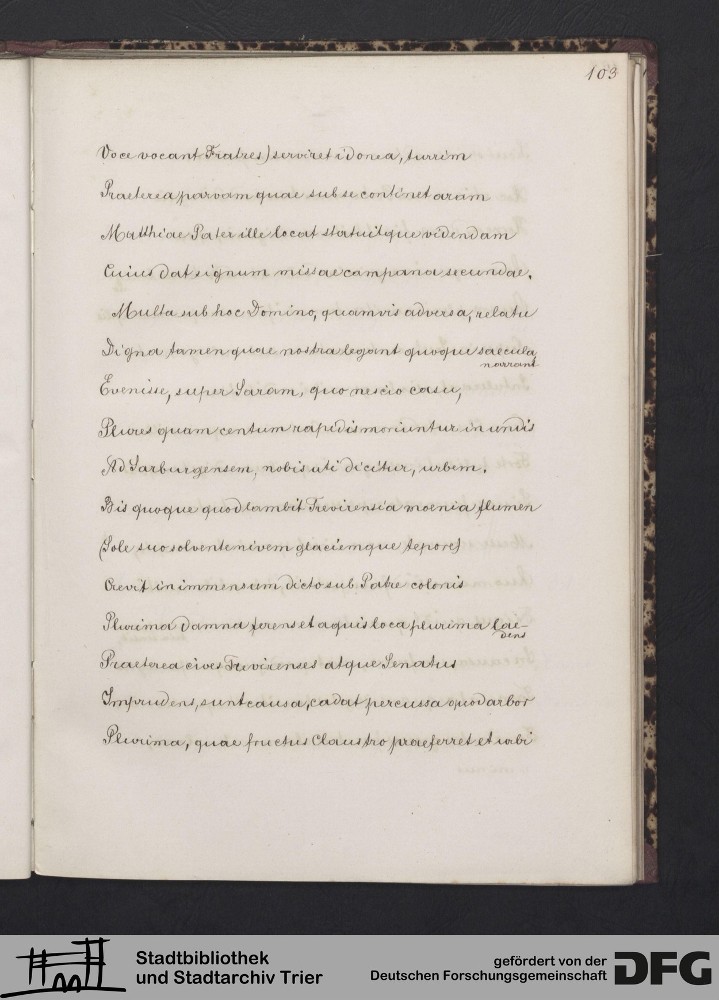 103
Voce vocant Fratres) serviret idonea, turrim
Praeterea parvam quae sub se continet aram
Matthiae Pater ille locat statuitque videndam
Cuius dat signum missae campana secundae.
Multa sub hoc Domino, quamvis adversa, relatu
Digna tamen quae nostra legant quoque saecula,
narrant
Evenisse, super Saram, quo nescio casu,
Plures quam centum rapidis moriuntur in undis
Ad Sarburgensem, nobis uti dicitur, urbem.
Bis quoque quod lambit Trevirensia moenia flumen
(Sole suo solvente nivem glaciemque tepore)
Crevit in immensum dicto sub Patre colonis
Plurima damna ferens et aquis loca plurima lae-
dens
Praeterea cives Trevirenses atque Senatus
Imprudens, sunt causa, cadat percussa quod arbor
Plurima, quae fructus Claustro praeferret et urbi
Stadtbibliothek
und Stadtarchiv Trier
gefördert von der
Deutschen Forschungsgemeinschaft
DFG